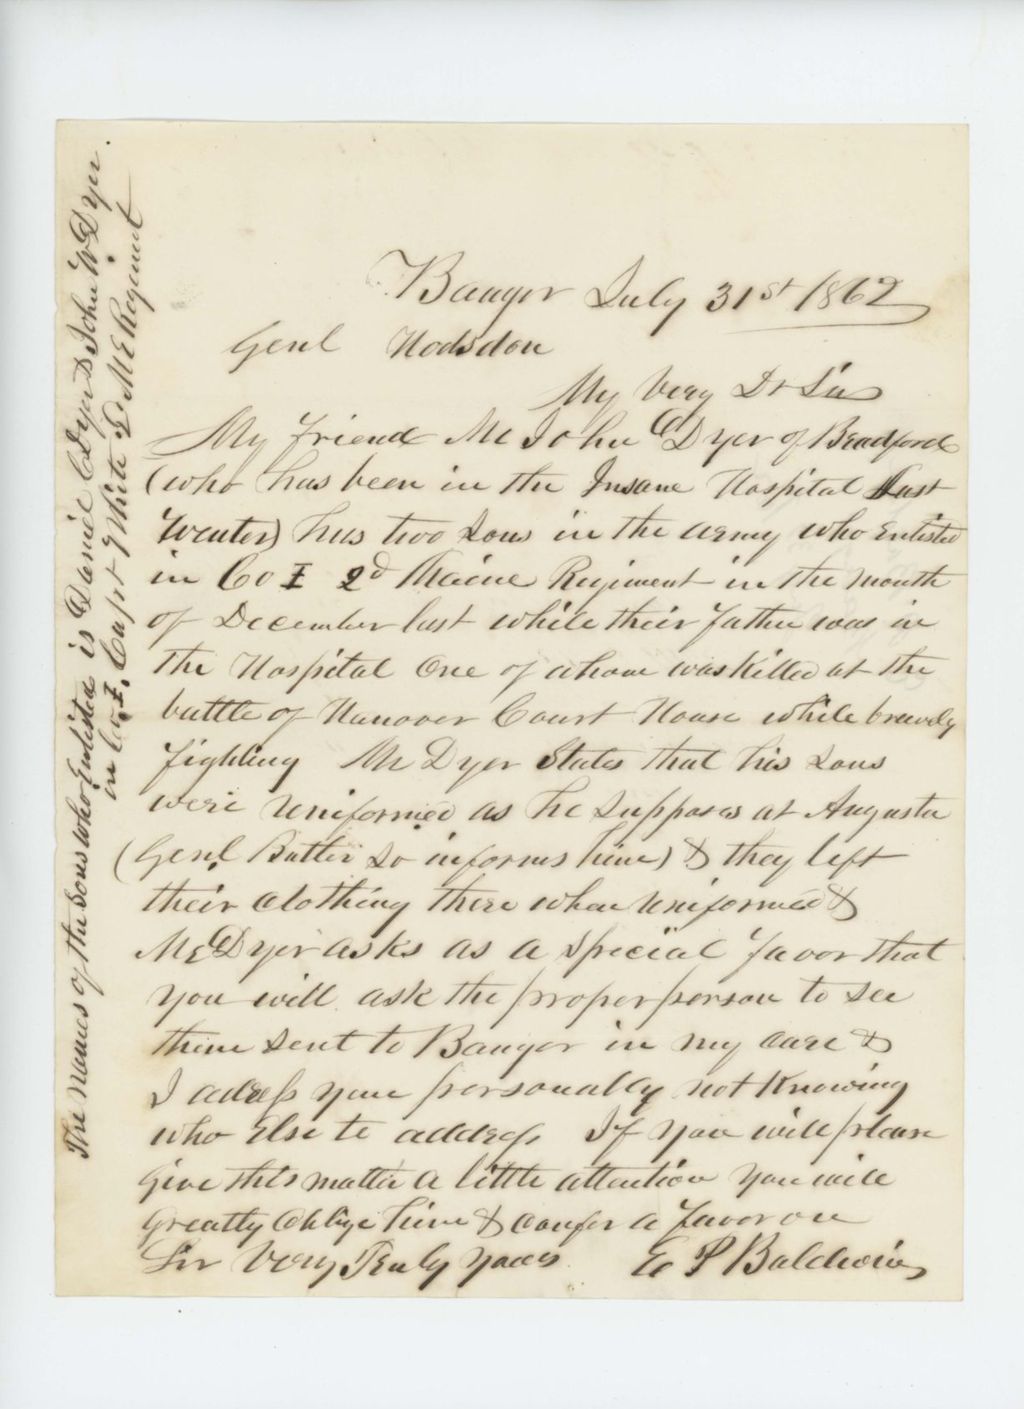 Bangor July 31st 1862
Genl Hodsdon
My Very Dr Sir
My friend Mr John C Dyer of Bradford
(who has been in the Insane Hospital Last
Winter) has two Sons in the army who Enlisted
in Co I 2d Maine Regiment in the month
of December last while their father was in
the Hospital One of whom was Killed at the
battle of Hanover Court House while bravely
fighting Mr Dyer States that his Sons
were Uniformed as he Supposes at Augusta
(Genl Butler So informs him) & they left
their Clothing there when Uniformed &
Mr Dyer asks as a Special favor that
you will ask the proper person to See
them Sent to Bangor in my Care &
I address you personally not Knowing
who Else to address If you will please
Give this matter a little attention You will
Greatly Oblige him & confer a favor on
Sir Very Truly Yours E S Baldwin
The names of the Sons who Enlisted is Daniel C Dyer & John W Dyer.
in Co I. Capt White 2d ME Regiment